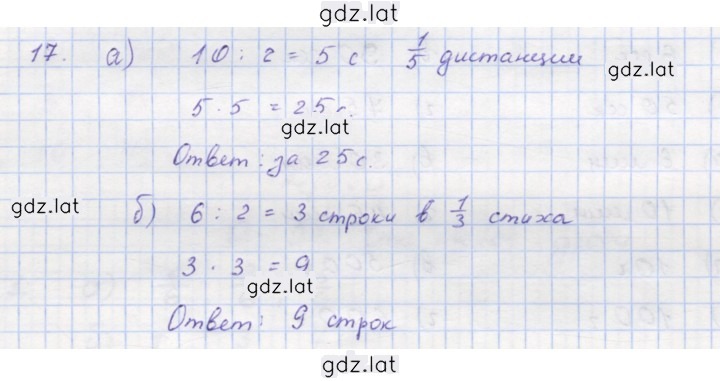 gdz.lat
17. а) 10 : 2 = 5 с 1/5 дистанции
gdz.lat
5 · 5 = 25 с.
gdz.lat
Ответ: за 25 с.
gdz.lat
б) 6 : 2 = 3 строки в 1/3 стиха
3 · 3 = 9
gdz.lat
Ответ: 9 строк
gdz.lat